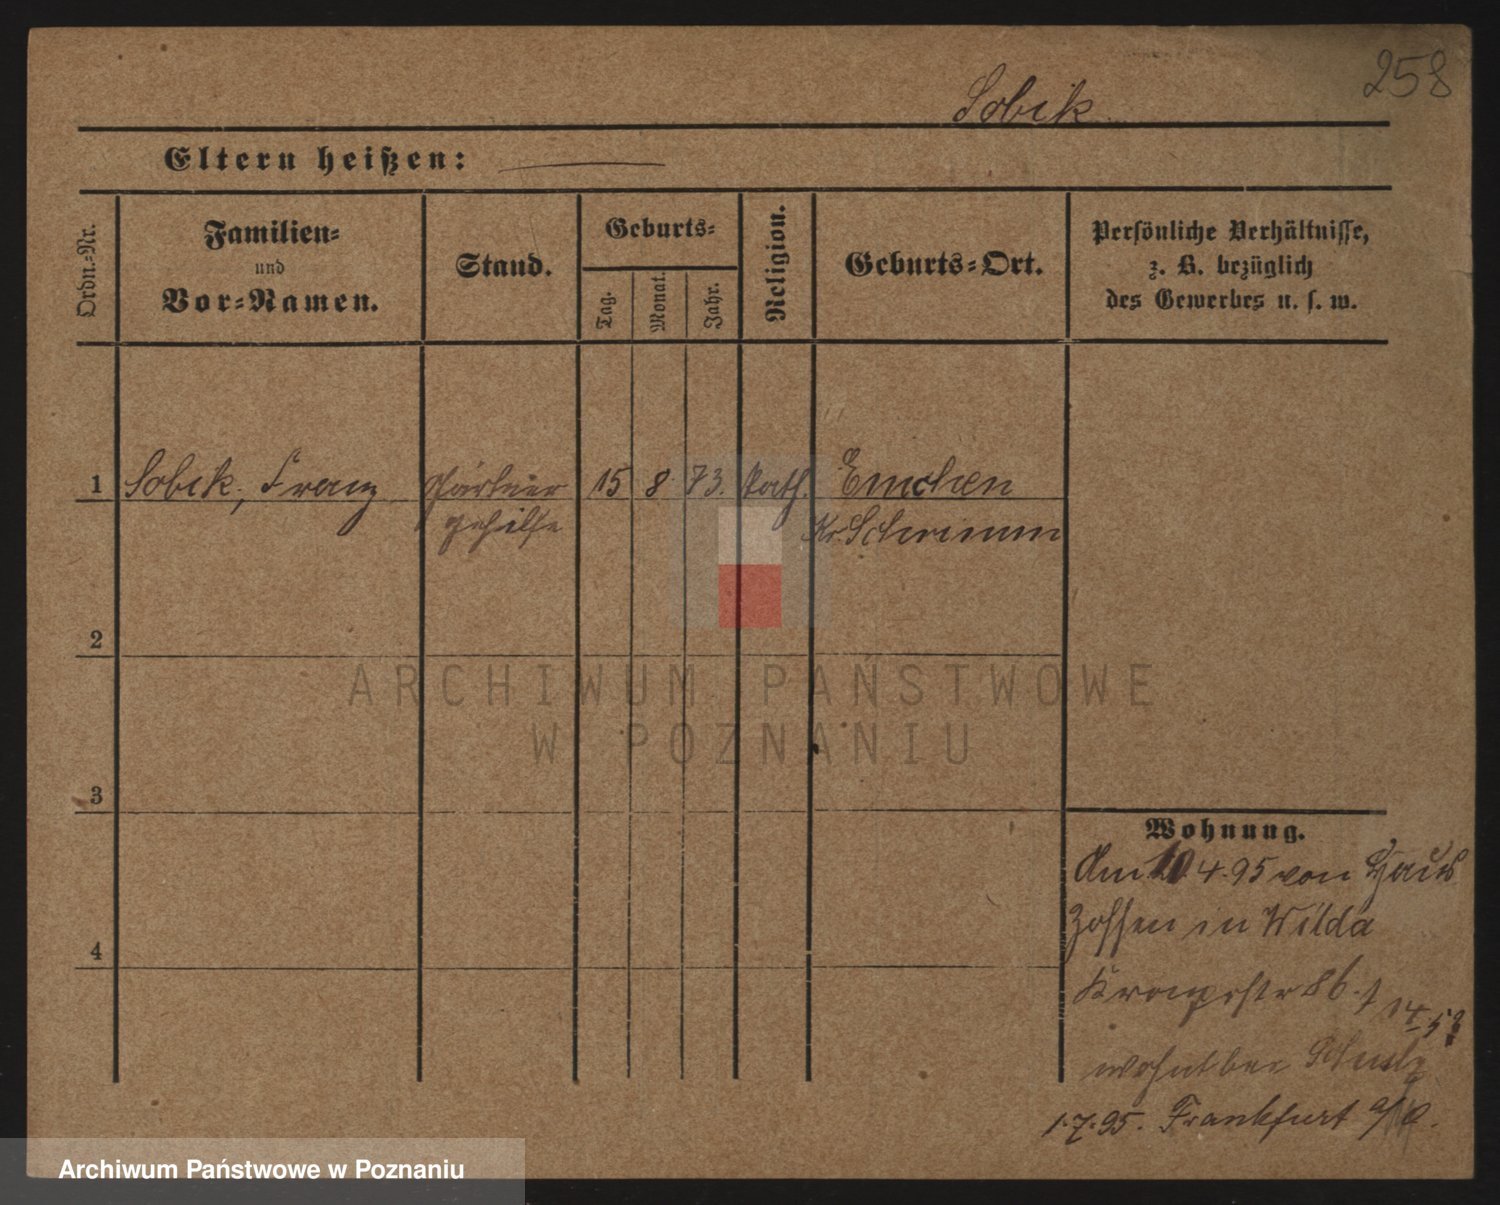 258
Sobik
Eltern heißen:
Ordn.-Nr.
Familien-
und
Vor-Namen.
Stand.
Geburts-
Tag.
Monat.
Jahr.
Religion.
Geburts-Ort.
Persönliche Verhältnisse,
z. B. bezüglich
des Gewerbes u. s. w.
1 Sobik, Franz Gärtner 15 8 73. Kath. Emchen
gehilfe Kr. Schrimm
2
3
4
Wohnung.
Am 10 4.95 von Haus
Zossen in Wilda
Kronprstr 86.
wohnt bei Schulz
1.7.95. Frankfurt a/O.
ARCHIWUM PAŃSTWOWE
W POZNANIU
Archiwum Państwowe w Poznaniu